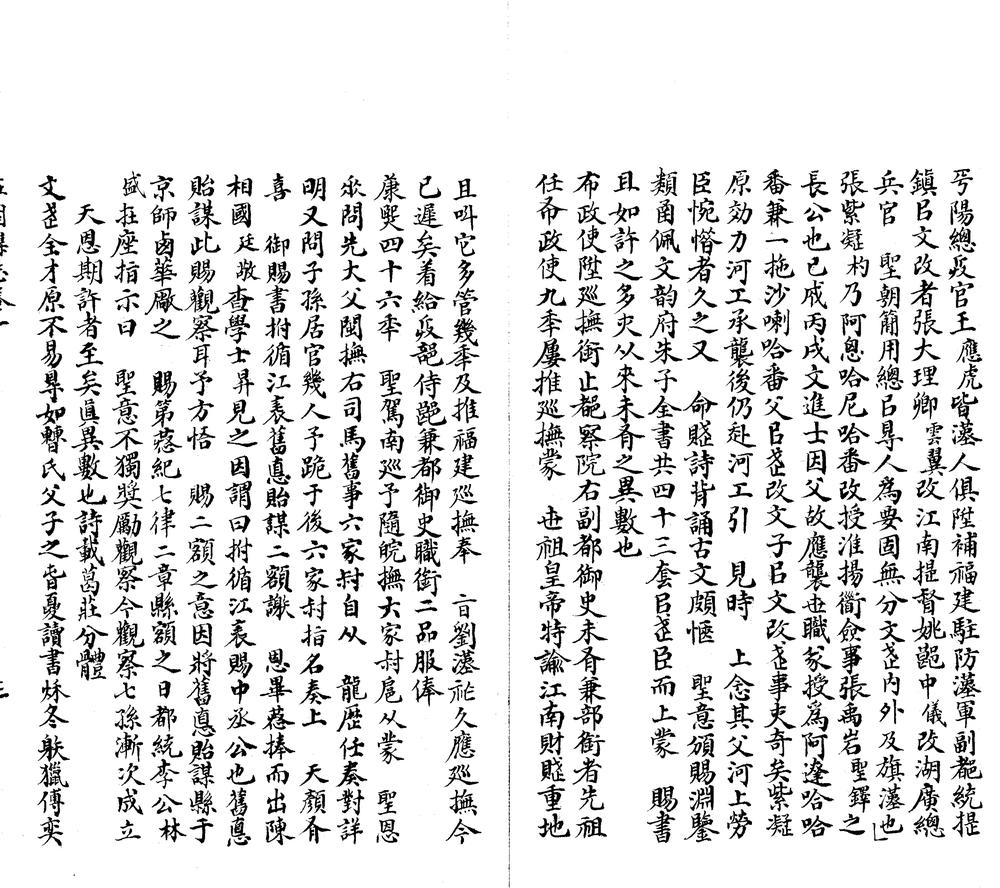 咢陽總兵官王應虎皆漢人俱陞補福建駐防漢軍副都統提
鎮㠯文改者張大理卿 雲翼改江南提督姚郎中 儀改湖廣總
兵官 聖朝簡用總㠯㝵人為要固無分文武內外及旗漢也
張紫凝 杓乃阿思哈尼哈番改授淮揚衜僉事張禹岩 聖鐸之
長公也已成丙戌文進士因父故應襲世職家授爲阿達哈哈
番兼一拖沙喇哈番父㠯武改文子㠯文改武事更奇矣紫凝
原効力河工承襲後仍赴河工引 見時 上念其父河上勞
臣惋惜者久之又 命賦詩背誦古文頗愜 聖意頒賜淵鑒
類函佩文韵府朱子全書共四十三套㠯武臣而上蒙 賜書
且如許之多更从來未有之異數也
布政使陞巡撫銜止都察院右副都御史未有兼部銜者先祖
任布政使九年屢推巡撫蒙 世祖皇帝特諭江南財賦重地
且叫它多管幾年及推福建巡撫奉 旨劉漢祚久應巡撫今
已遲矣着給兵部侍郎兼都御史職銜二品服俸
康熙四十六年 聖駕南巡予隨皖撫大家村扈从蒙 聖恩
垂問先大父閩撫右司馬舊事六家村自从 龍歷任奏對詳
明又問子孫居官幾人予跪于後六家村指名奏上 天顏有
喜 御賜書拊循江表舊悳貽謀二額謝 恩畢恭捧而出陳
相國 廷敬查學士昇見之因謂曰拊循江表賜中丞公也舊悳
貽謀此賜觀察耳予方悟 賜二額之意因將舊悳貽謀縣于
京師鹵莽廠之 賜第恭紀七律二章縣額之日都統李公林
盛在座指示曰 聖意不獨獎勵觀察今觀察七孫漸次成立
天恩期許者至矣眞異數也詩載葛莊分體
文武全才原不易㝵如曹氏父子之春夏讀書秌冬躲獵傅奕